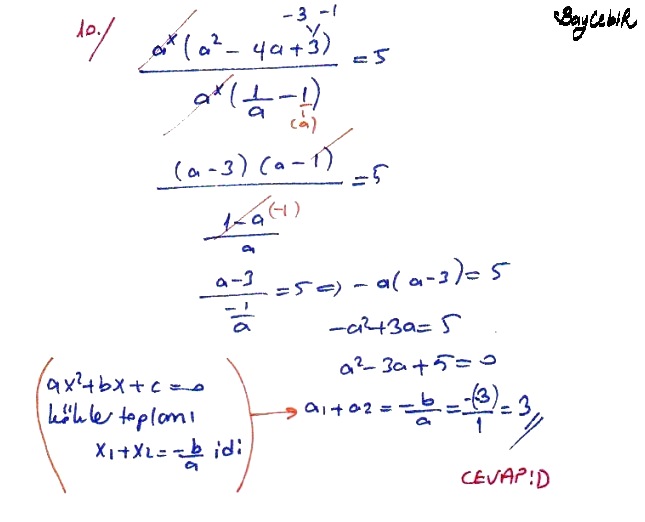 BayCebiR
10./
-3 -1
a^x (a² - 4a + 3) / a^x (1/a - 1) = 5
(a)
(a-3) (a-1) / ((1-a)/a) = 5
(-1)
(a-3) / (-1/a) = 5 ⇔ -a(a-3) = 5
-a²+3a = 5
a² - 3a + 5 = 0
ax²+bx+c = 0
kökler toplamı
x₁+x₂ = -b/a idi
a₁+a₂ = -b/a = -(3)/1 = 3
CEVAP:D